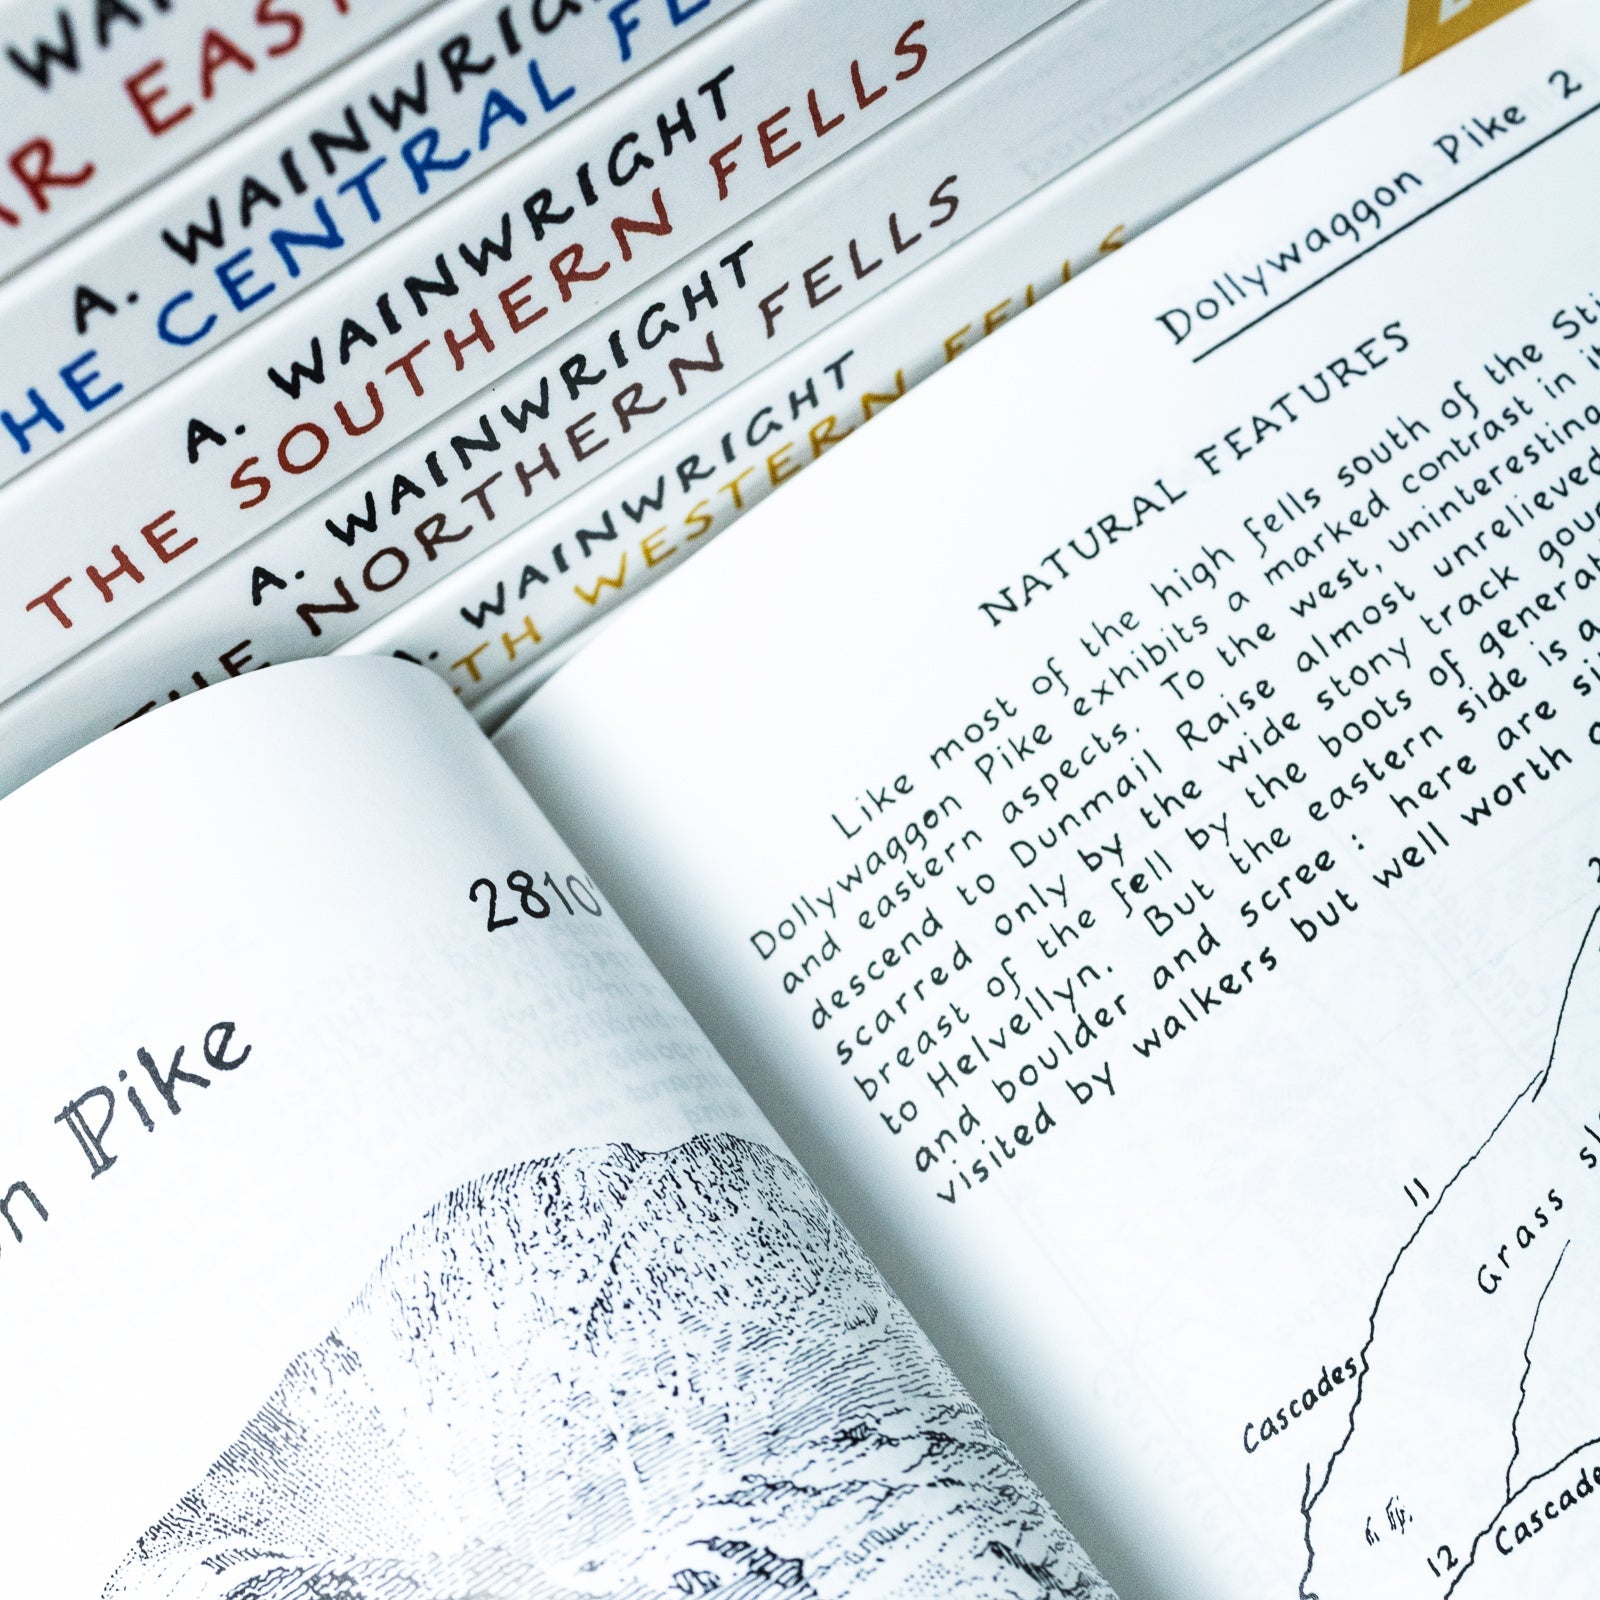 EAST
A. WAINWRIGHT
THE CENTRAL
A. WAINWRIGHT
THE SOUTHERN FELLS
A. WAINWRIGHT
THE NORTHERN FELLS
WAINWRIGHT
WESTERN FELLS
2810'
Pike
Dollywaggon Pike 2
NATURAL FEATURES
Like most of the high fells south of the
Dollywaggon Pike exhibits a marked contrast in
and eastern aspects. To the west, uninteresting
descend to Dunmail Raise almost unrelieved
scarred only by the wide stony track
breast of the fell by the boots of
to Helvellyn. But the eastern side is a
and boulder and scree : here are
visited by walkers but well worth
11
Grass
Cascades
12
Cascade